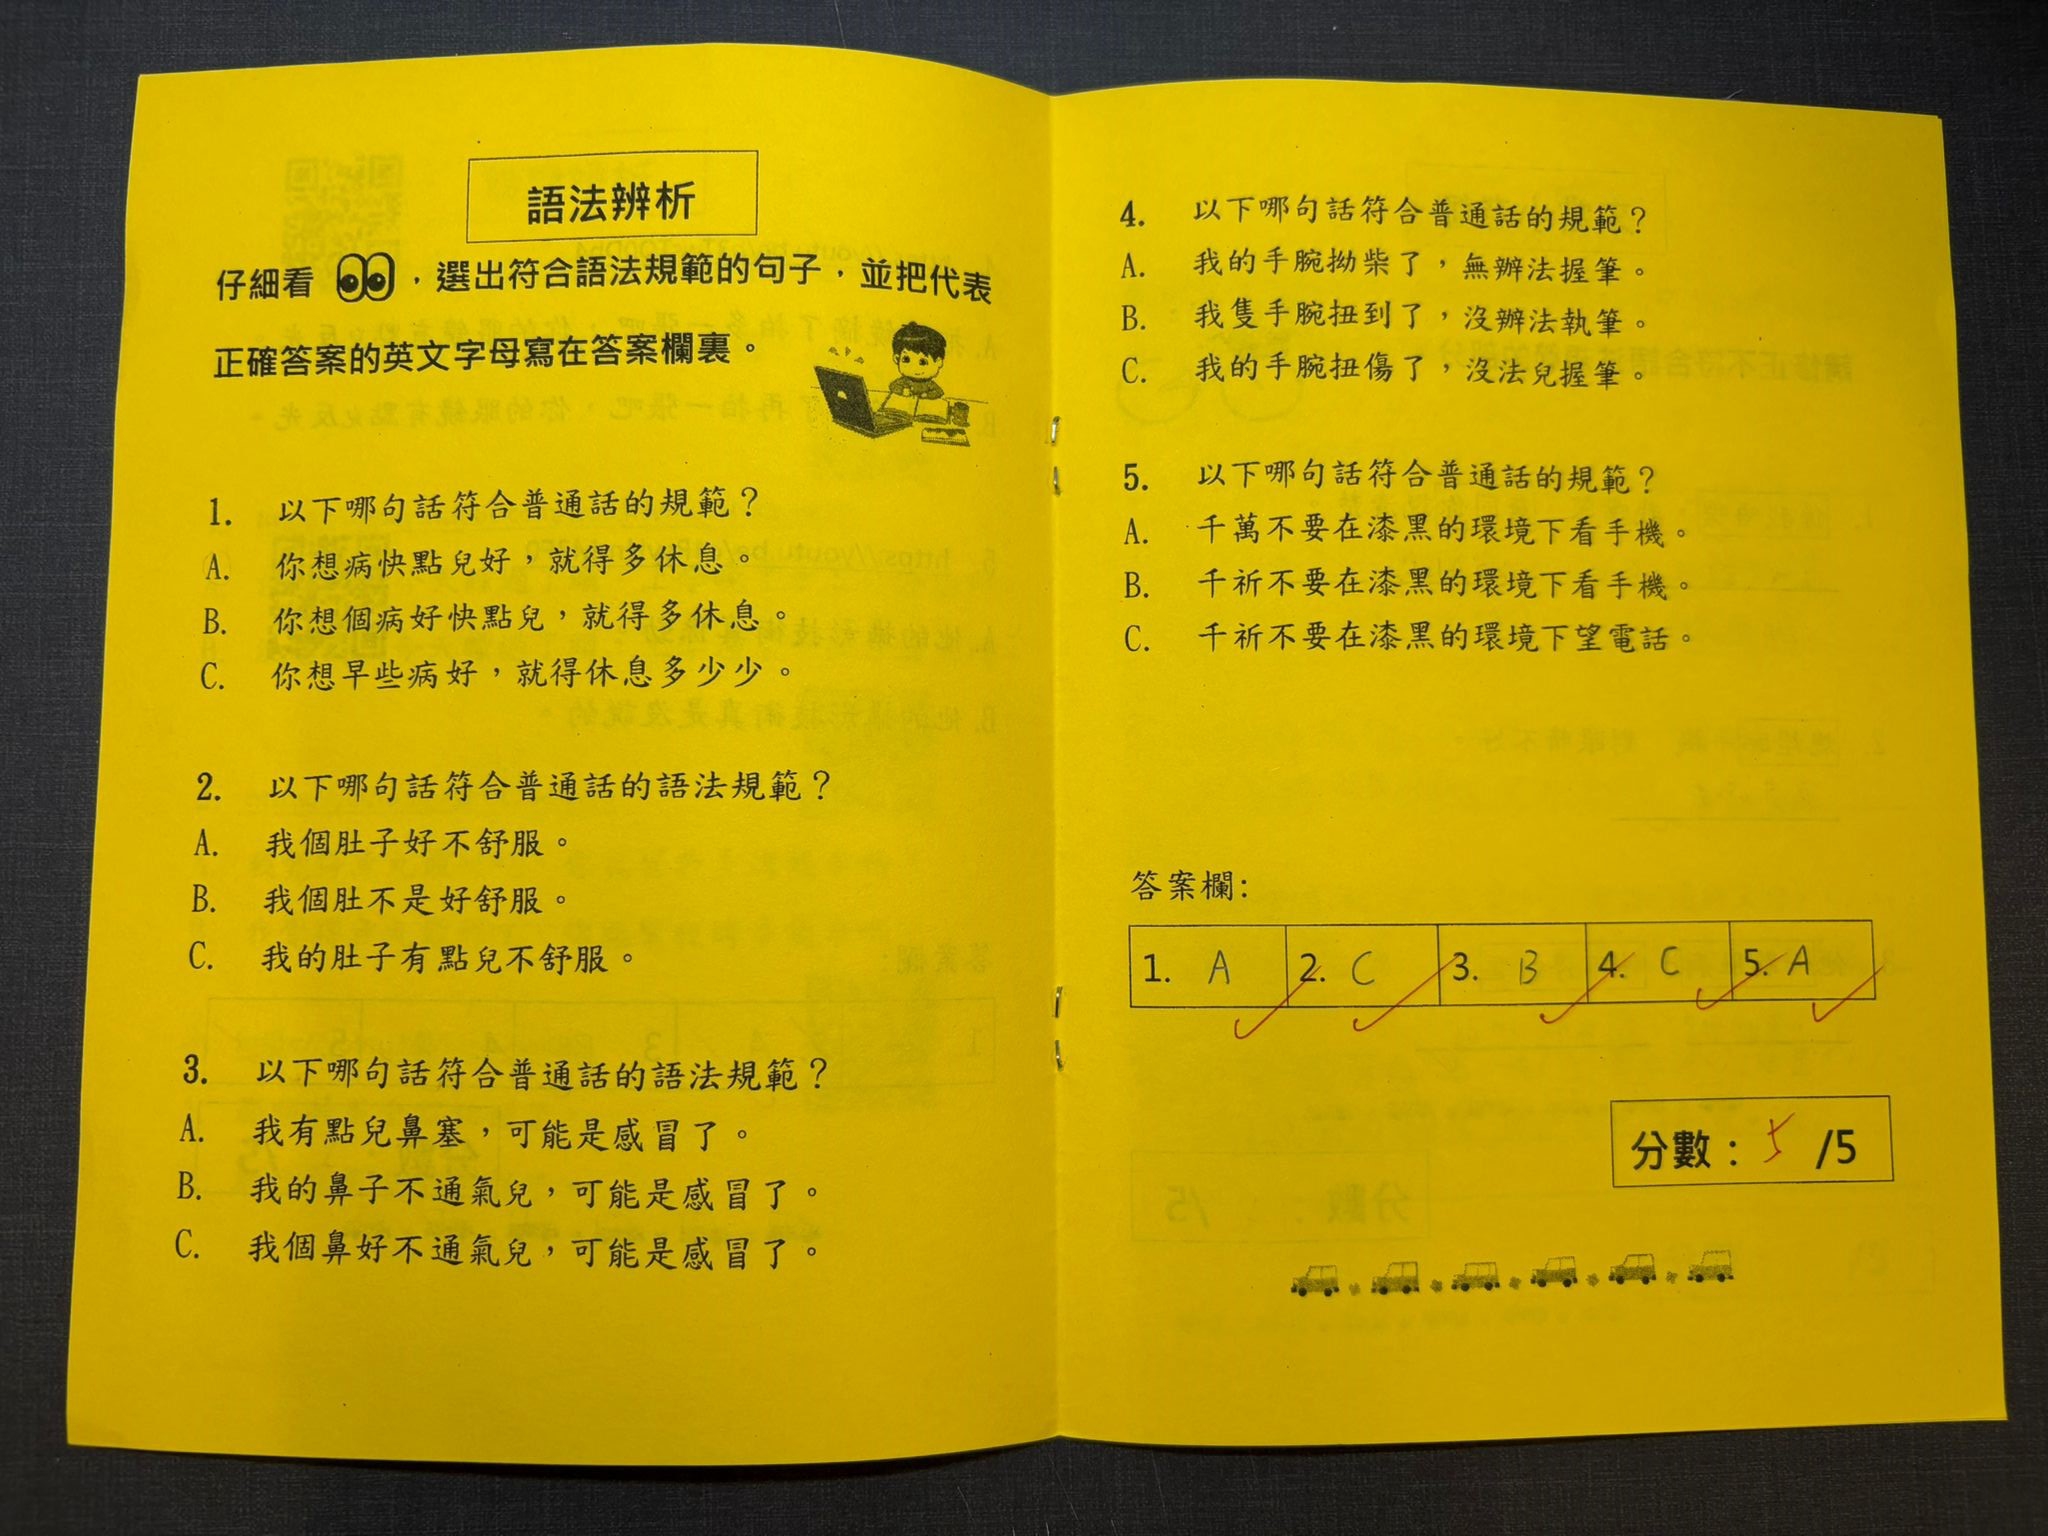 語法辨析
仔細看，選出符合語法規範的句子，並把代表
正確答案的英文字母寫在答案欄裏。
1. 以下哪句話符合普通話的規範？
A. 你想病快點兒好，就得多休息。
B. 你想個病好快點兒，就得多休息。
C. 你想早些病好，就得休息多少少。
2. 以下哪句話符合普通話的語法規範？
A. 我個肚子好不舒服。
B. 我個肚不是好舒服。
C. 我的肚子有點兒不舒服。
3. 以下哪句話符合普通話的語法規範？
A. 我有點兒鼻塞，可能是感冒了。
B. 我的鼻子不通氣兒，可能是感冒了。
C. 我個鼻好不通氣兒，可能是感冒了。
4. 以下哪句話符合普通話的規範？
A. 我的手腕拗柴了，無辦法握筆。
B. 我隻手腕扭到了，沒辦法執筆。
C. 我的手腕扭傷了，沒法兒握筆。
5. 以下哪句話符合普通話的規範？
A. 千萬不要在漆黑的環境下看手機。
B. 千祈不要在漆黑的環境下看手機。
C. 千祈不要在漆黑的環境下望電話。
答案欄:
1. A 2. C 3. B 4. C 5. A
分數：5 /5